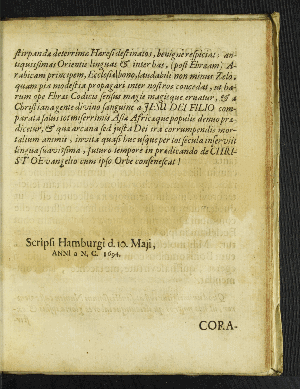 stirpanda deterrima Hæresi destinatos, benignè respicias: an-
tiquissimas Orientis linguas & inter has, (post Ebræam) A-
rabicam principem, Ecclesiæ bono, laudabili non minus Zelo,
quam pia modestia propagari inter nostros concedas, ut ha-
rum ope Ebræi Codicis sensus magis magisque eruatur, & a
Christiana gente divino sanguine a JESU DEI FILIO com-
parata salus tot miserrimis Asiæ Africæque populis denuo præ-
dicetur, & quæ arcana sed justa Dei ira corrumpendis mor-
talium animis, invita quasi hucusque per tot secula inservit
lingua suavissima, futuro tempore in prædicando de CHRI-
STO Evangelio cum ipso Orbe consenescat!
Scripsi Hamburgi d. 10. Maji,
ANNI a N. C. 1694.
CORA-